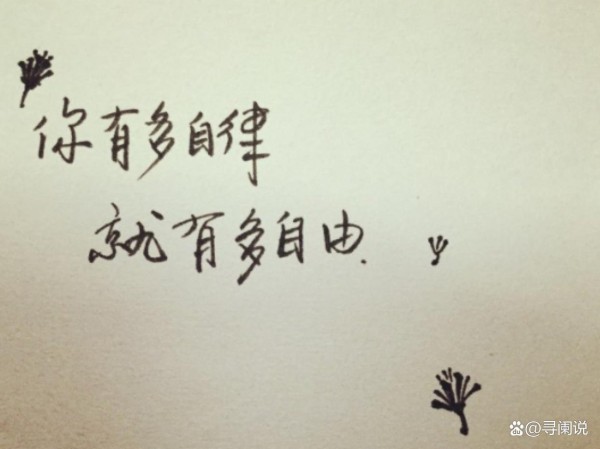 你有多自律
就有多自由.
@寻阑说